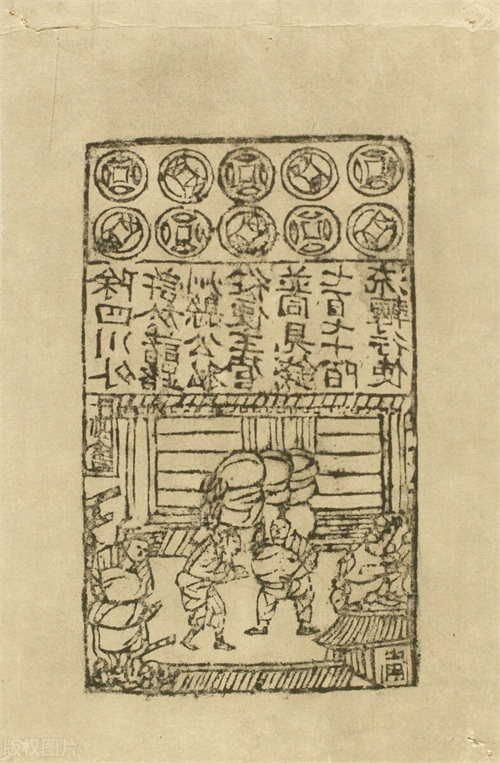 除四川外
許於諸路
州縣公私
從便主管
並同見錢
七百七十陌
流轉行使
版权图片